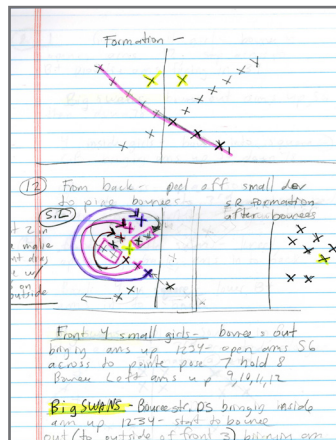 Formation -
12 From back - peel off small dev
to pine bounces - SR formation
S.L after bounces
t 2 in
a move
on
outside
Front 4 small girls - bounce out
bringing arms up 1234 - open arms 56
across to pointe pose 7 hold 8
Bourre Left arms up 9,10,11,12
Big SWANS - Bourre str. DS bringing inside
arm up 1234 - start to bource
out/to outside of front 3 bringing arm